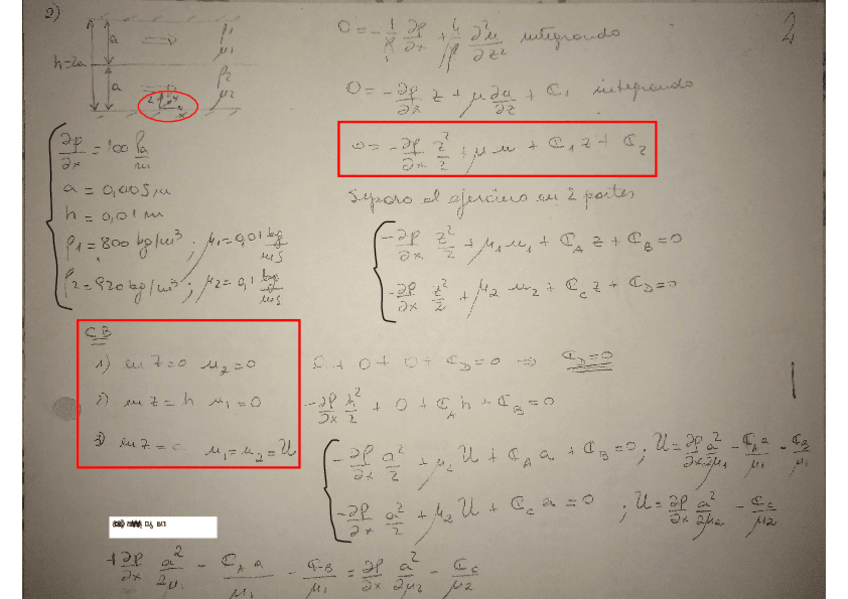 2)
2
a
ρ₁
μ₁
h=2a
a
ρ₂
μ₂
0 = -1/ρ ∂p/∂x + μ/ρ ∂²u/∂z² integrando
0 = -∂p/∂x z + μ ∂u/∂z + C₁ integrando
0 = -∂p/∂x z²/2 + μ u + C₁ z + C₂
∂p/∂x = 100 Pa/m
a = 0,005 m
h = 0,01 m
ρ₁ = 800 kg/m³ ; μ₁ = 0,01 kg/ms
ρ₂ = 920 kg/m³ ; μ₂ = 0,1 kg/ms
Separo el ejercicio en 2 partes
-∂p/∂x z²/2 + μ₁ u₁ + C_A z + C_B = 0
-∂p/∂x z²/2 + μ₂ u₂ + C_C z + C_D = 0
CB
1) en z=0 u₂=0
0 + 0 + 0 + C_D = 0 ⇒ C_D = 0
2) en z=h u₁=0
-∂p/∂x h²/2 + 0 + C_A h + C_B = 0
3) en z= u₁=u₂=U
-∂p/∂x a²/2 + μ₁ U + C_A a + C_B = 0 ; U = ∂p/∂x a²/2μ₁ - C_A a/μ₁ - C_B/μ₁
-∂p/∂x a²/2 + μ₂ U + C_C a = 0 ; U = ∂p/∂x a²/2μ₂ - C_C/μ₂
+∂p/∂x a²/2μ₁ - C_A a/μ₁ - C_B/μ₁ = ∂p/∂x a²/2μ₂ - C_C/μ₂